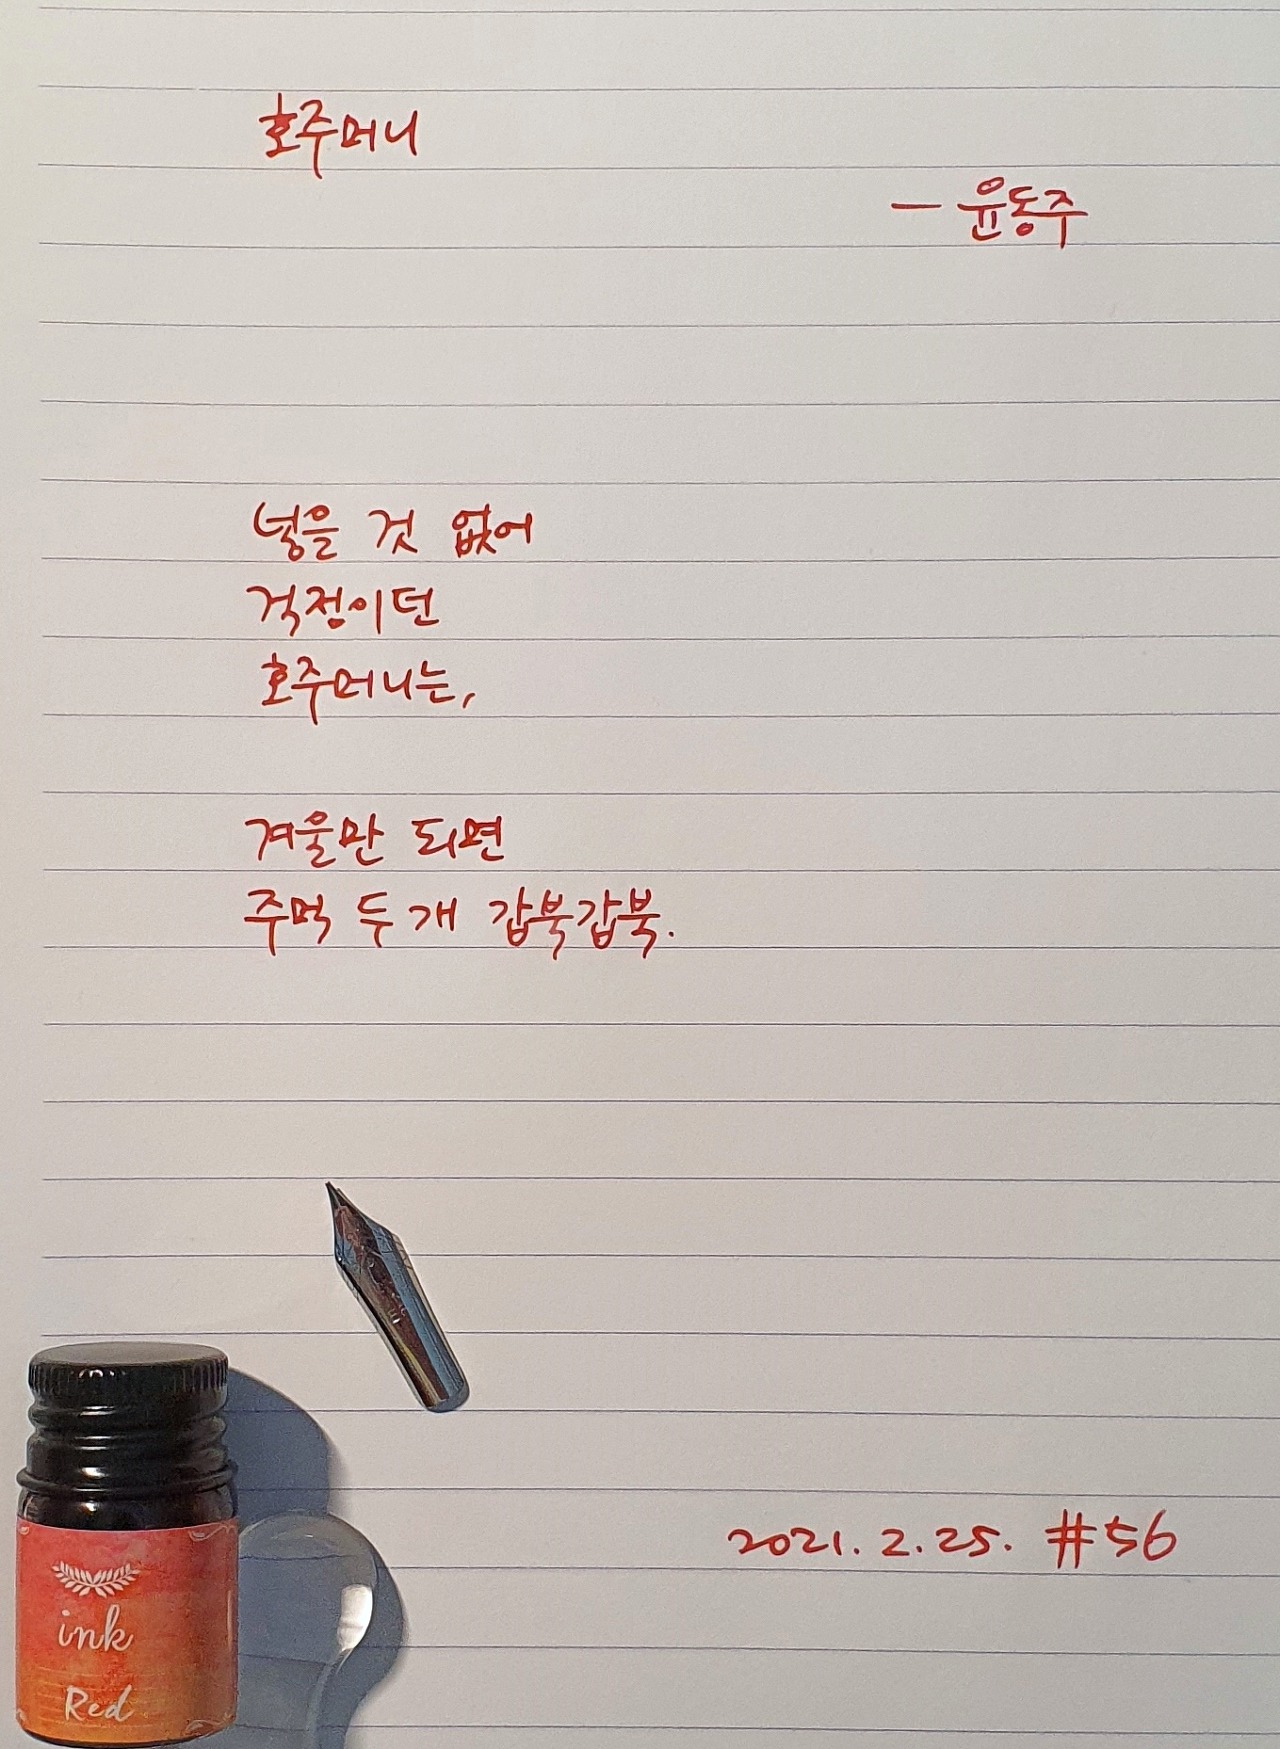 호주머니
― 윤동주
넣을 것 없어
걱정이던
호주머니는,
겨울만 되면
주먹 두 개 갑북갑북.
2021. 2. 25. #56
ink
Red